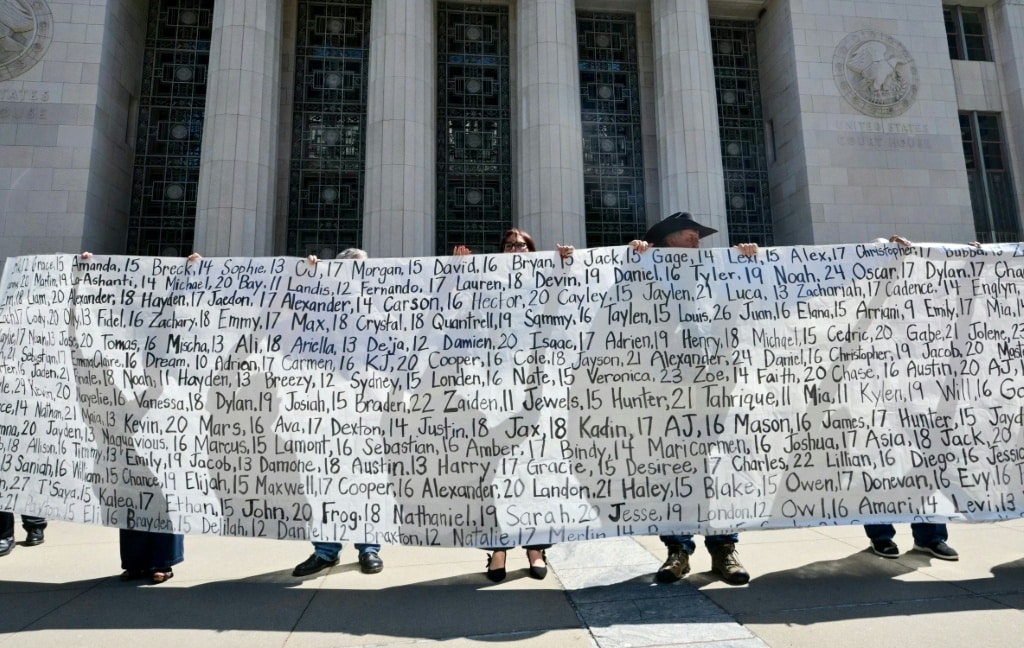 STATES
HOUSE
UNITED STATES
COURT HOUSE
Grace, 15 Amanda, 15 Breck, 14 Sophie, 13 CJ, 17 Morgan, 15 David, 16 Bryan, 15 Jack, 15 Gage, 14 Lexi, 15 Alex, 17 Christopher, Bubba,
20 Marlin, 19 La-Ashanti, 14 Michael, 20 Bay, 11 Landis, 12 Fernando, 17 Lauren, 18 Devin, 19 Daniel, 16 Tyler, 19 Noah, 24 Oscar, 17 Dylan, 17
18 Liam, 20 Alexander, 18 Hayden, 17 Jaedon, 17 Alexander, 14 Carson, 16 Hector, 20 Cayley, 15 Jaylen, 21 Luca, 13 Zachariah, 17 Cadence, 14 Englyn,
17 Cody, 20 13 Fidel, 16 Zachary, 18 Emmy, 17 Max, 18 Crystal, 18 Quantrell, 19 Sammy, 16 Taylen, 15 Louis, 26 Juan, 16 Elana, 15 Arriani, 9 Emily, 17 Mia, 1
17 Noah, 13 20 Tomas, 16 Mischa, 13 Ali, 18 Ariella, 13 De'ja, 12 Damien, 20 Isaac, 17 Adrien, 19 Henry, 18 Michael, 15 Cedric, 20 Gabe, 21 Jolene, 23
21 Sebastian, 17 EmmaClaire, 16 Dream, 10 Adrian, 17 Carmen, 16 KJ, 20 Cooper, 16 Cole, 18 Jayson, 21 Alexander, 24 Daniel, 16 Christopher, 19 Jacob, 20
16 Jaden, 21 18 Noah, 17 Hayden, 13 Breezy, 12 Sydney, 15 Londen, 16 Nate, 15 Veronica, 23 Zoe, 14 Faith, 20 Chase, 16 Austin, 20 AJ, 1
29 Kevin, 20 16 Vanessa, 18 Dylan, 19 Josiah, 15 Braden, 22 Zaiden, 11 Jewels, 15 Hunter, 21 Tahrique, 11 Mia, 11 Kylen, 19 Will, 16
14 Nathan, 21 13 Kevin, 20 Mars, 16 Ava, 17 Dexton, 14 Justin, 18 Jax, 18 Kadin, 17 AJ, 16 Mason, 16 James, 17 Hunter, 15
20 Jayden, 13 Naquavious, 16 Marcus, 15 Lamont, 16 Sebastian, 16 Amber, 17 Bindy, 14 Maricarmen, 16 Joshua, 17 Asia, 18 Jack, 20
18 Allison, 16 Timmy, 13 Emily, 19 Jacob, 13 Damone, 18 Austin, 13 Harry, 17 Gracie, 15 Desiree, 17 Charles, 22 Lillian, 16 Diego, 16
13 Saniah, 16 15 Chance, 19 Elijah, 15 Maxwell, 17 Cooper, 16 Alexander, 20 Landon, 21 Haley, 15 Blake, 15 Owen, 17 Donovan, 16 Evy, 16 T
27 T'Saya, 15 Kalea, 17 Ethan, 15 John, 20 Frog, 18 Nathaniel, 19 Sarah, 20 Jesse, 19 London, 12 Owl, 16 Amari, 14 Levi, 13
21 15 Eli, 16 Brayden, 15 Delilah, 12 Daniel, 12 Braxton, 12 Natalie, 17 Merlin, 14